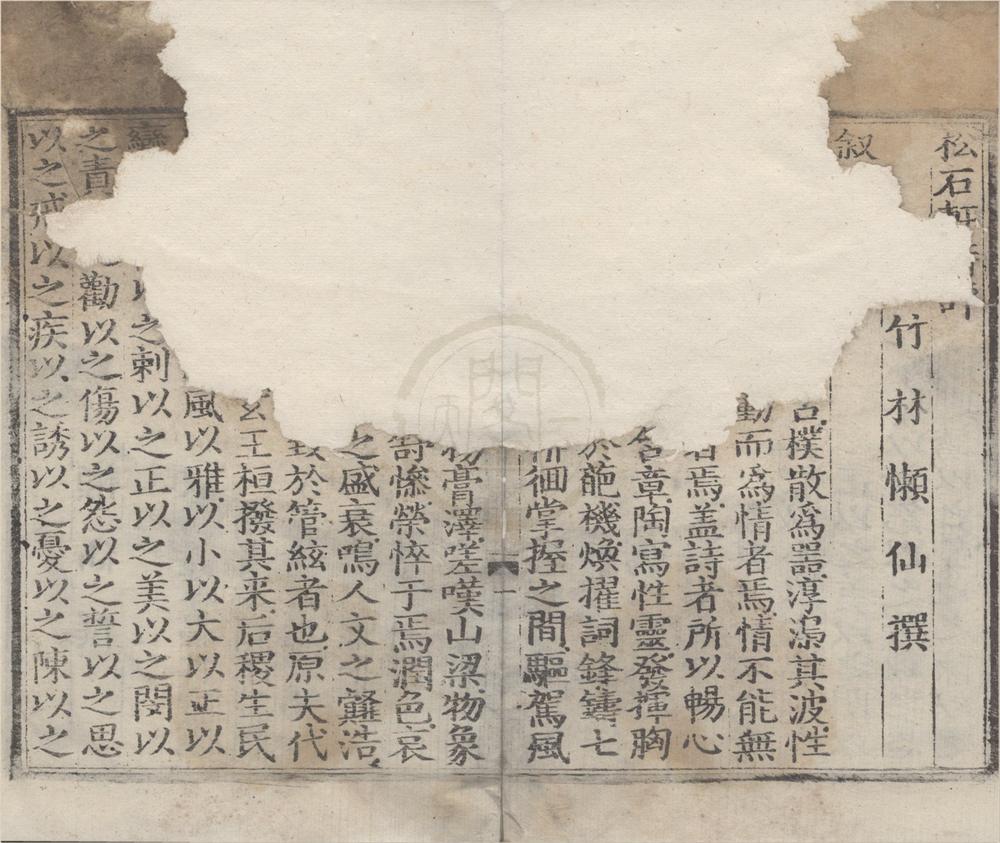 松石軒
竹林懶仙撰
叙
樸散爲噐淳澆其波性
動而爲情者焉情不能無
焉盖詩者所以暢心
含章陶寫性靈發揮胸
於葩機煥擢詞鋒鑄七
徘徊掌握之間驅駕風
物膏澤嗟嘆山梁物象
慘榮悴于焉潤色哀
之盛衰鳴人文之蘳浩
於管絃者也原夫代
玄王桓撥其来后稷生民
風以雅以小以大以正以
以之刺以之正以之美以之閔以
之責 勸以之傷以之怨以之誓以之思
以之戒以之疾以之誘以之憂以之陳以之